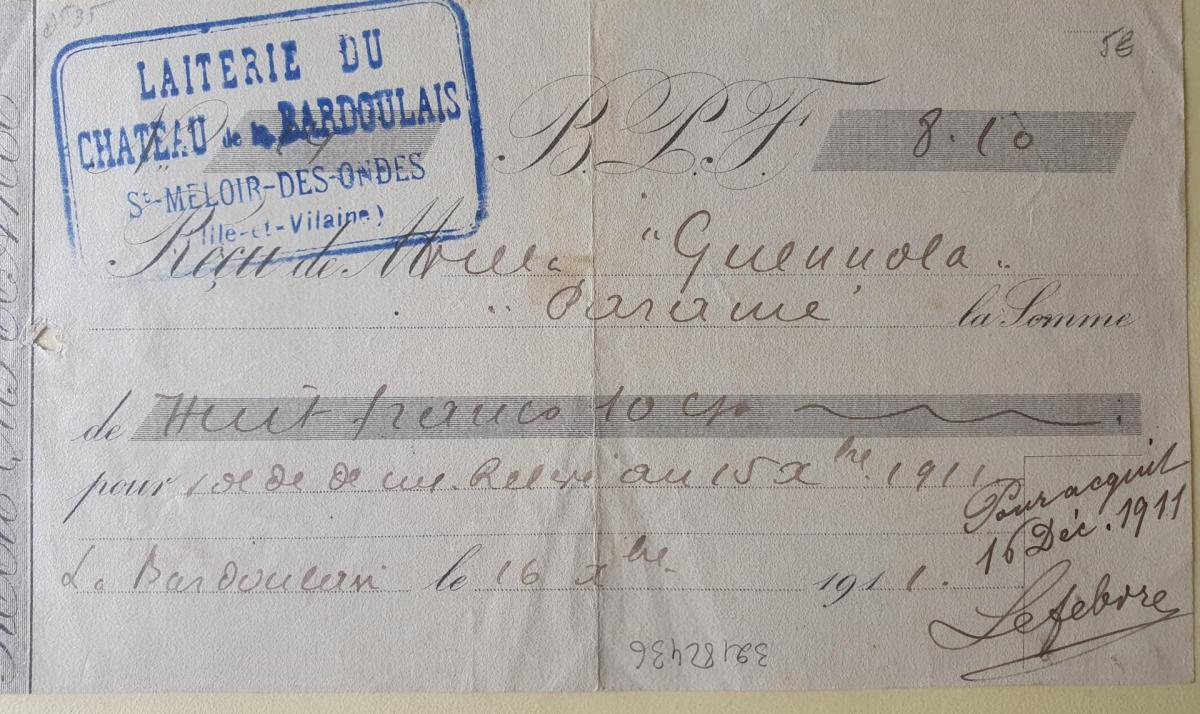 5€
LAITERIE DU
CHATEAU de la BARDOULAIS
St-MELOIR-DES-ONDES
(Ille-et-Vilaine)
B.P.F. 8.10
Reçu de M "Guennola"
"Paramé la Somme
de Huit francs 10 cts
pour solde de au 15 Xbre 1911
La Bardoulais le 16 Xbre 1911.
Pour acquit
16 Déc. 1911
Lefebvre
39182436